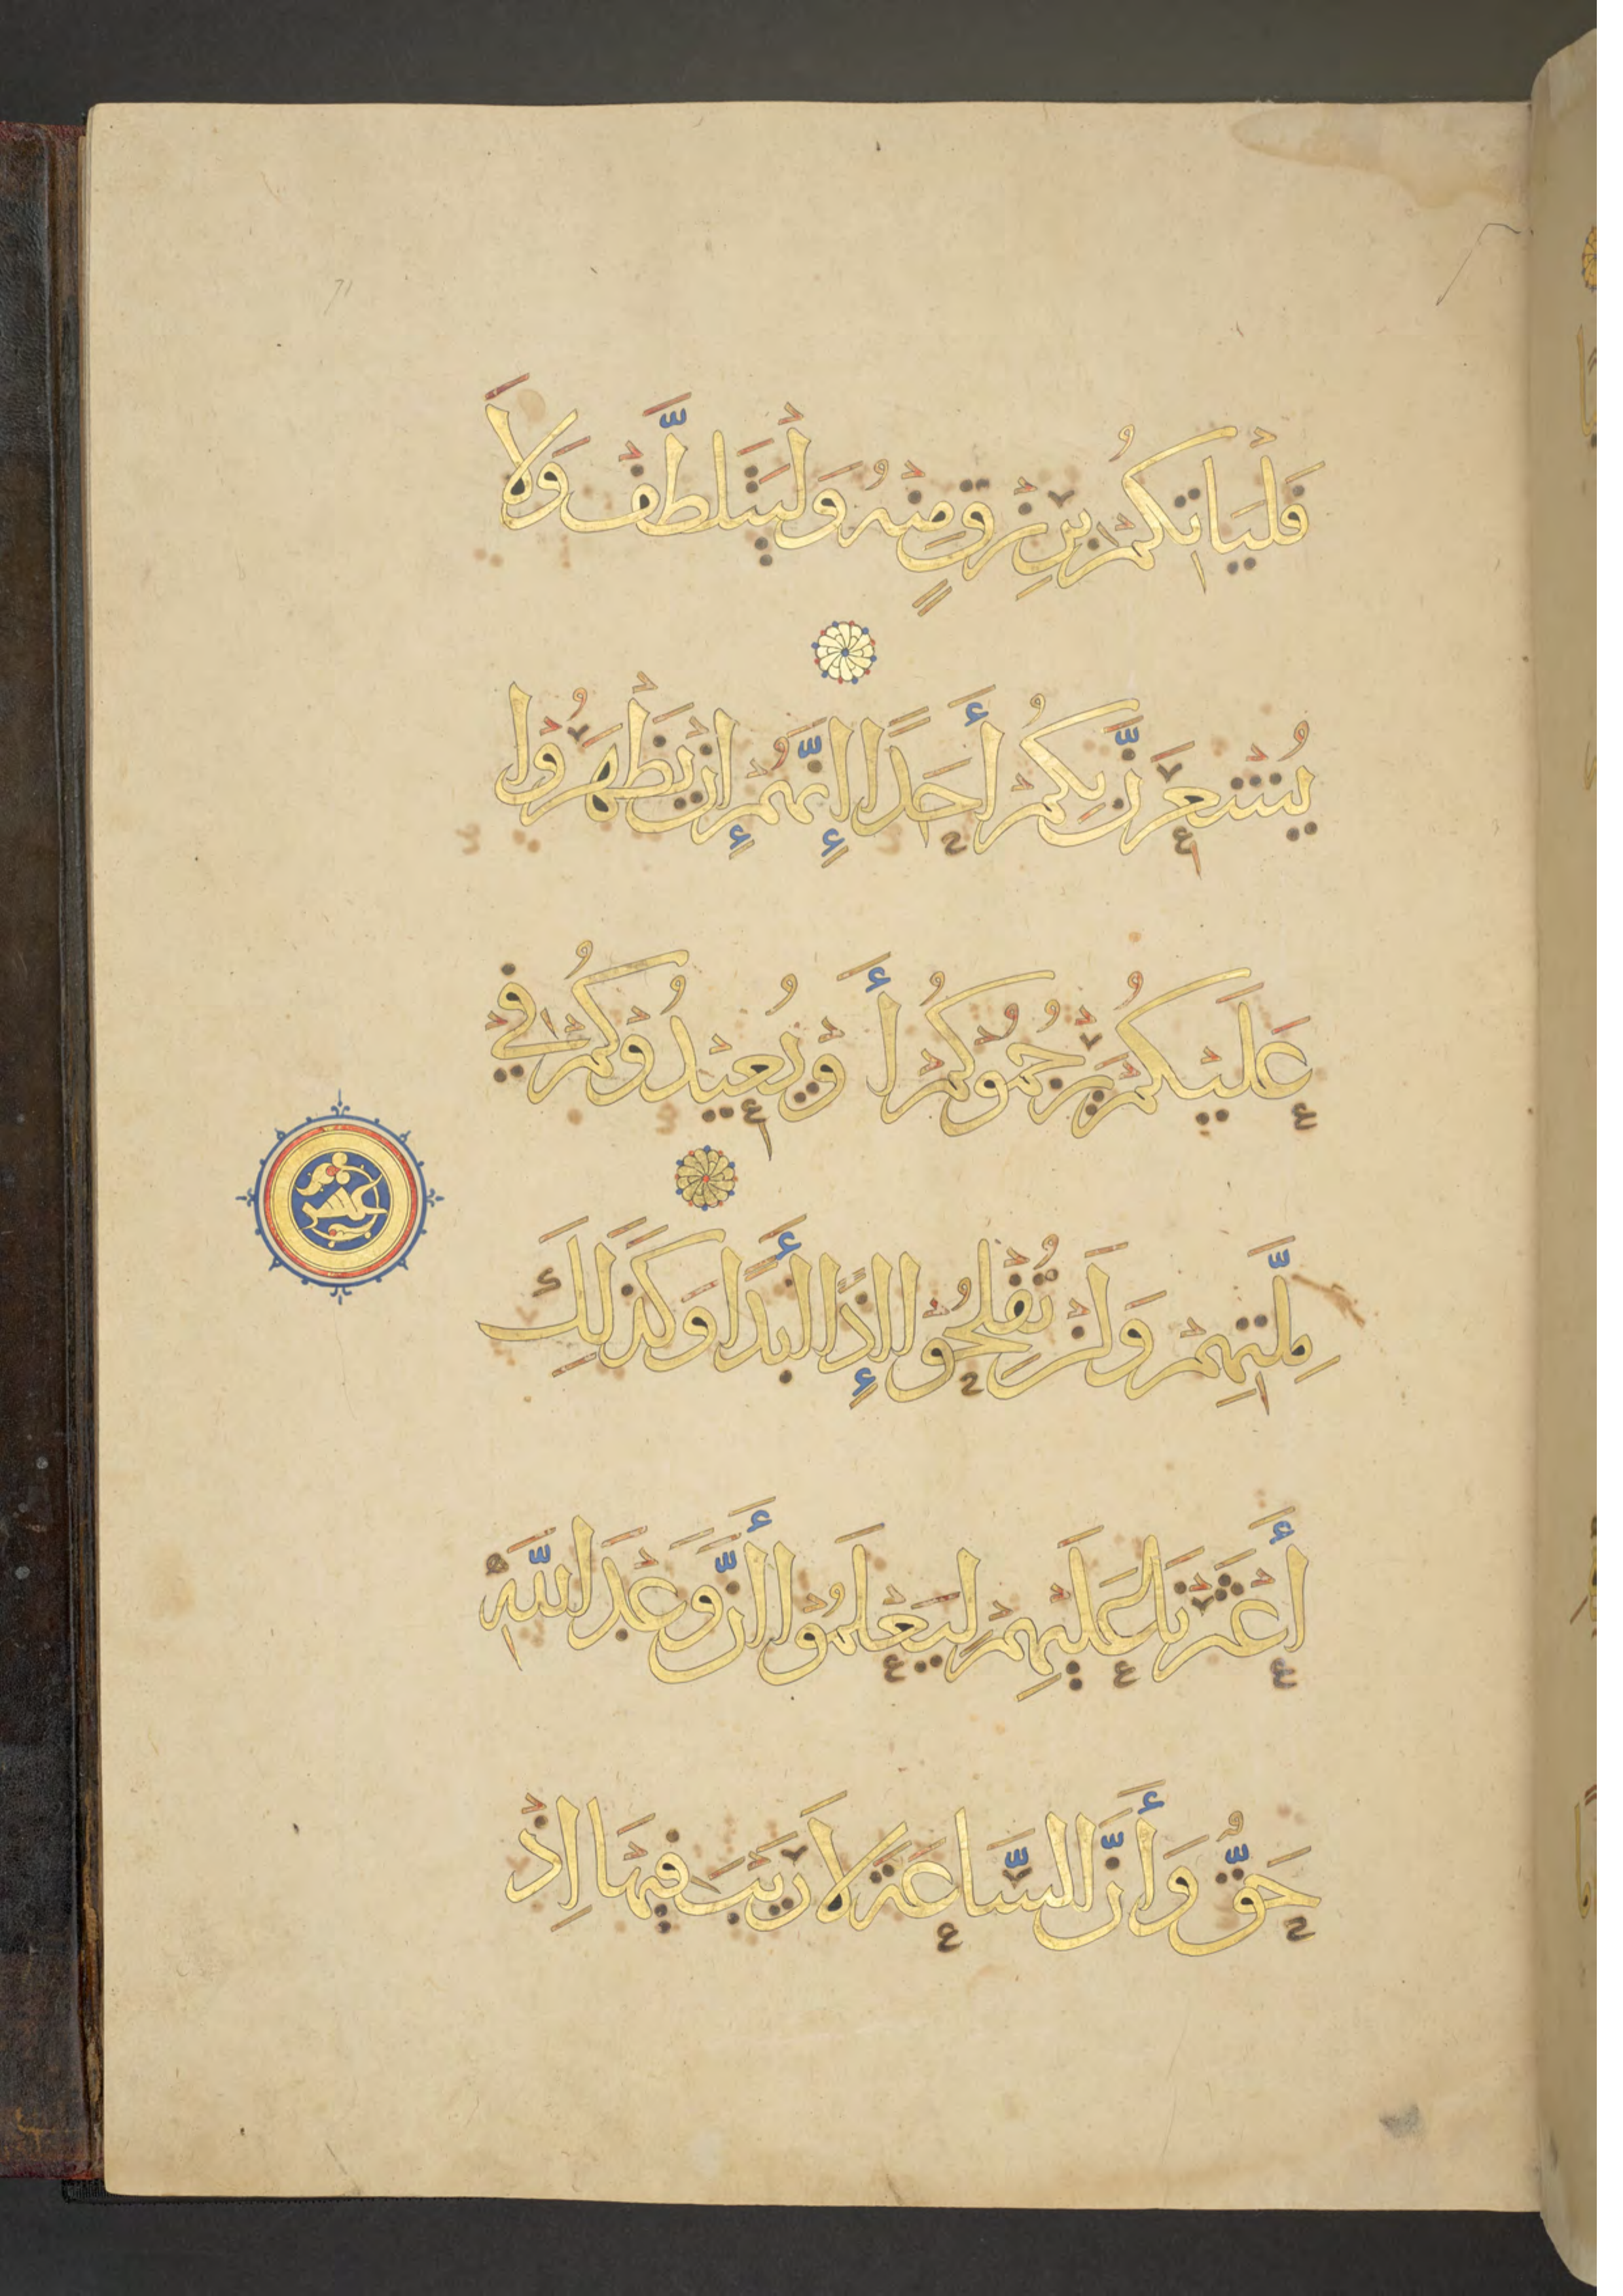 فَلْيَاتِكُمْ بِرِزْقٍ مِنْهُ وَلْيَتَلَطَّفْ وَلَا
يُشْعِرَنَّ بِكُمْ أَحَدًا إِنَّهُمْ إِنْ يَظْهَرُوا
عَلَيْكُمْ يَرْجُمُوكُمْ أَوْ يُعِيدُوكُمْ فِي
عشر
مِلَّتِهِمْ وَلَنْ تُفْلِحُوا إِذًا أَبَدًا وَكَذَلِكَ
أَعْثَرْنَا عَلَيْهِمْ لِيَعْلَمُوا أَنَّ وَعْدَ اللَّهِ
حَقٌّ وَأَنَّ السَّاعَةَ لَا رَيْبَ فِيهَا اِذْ